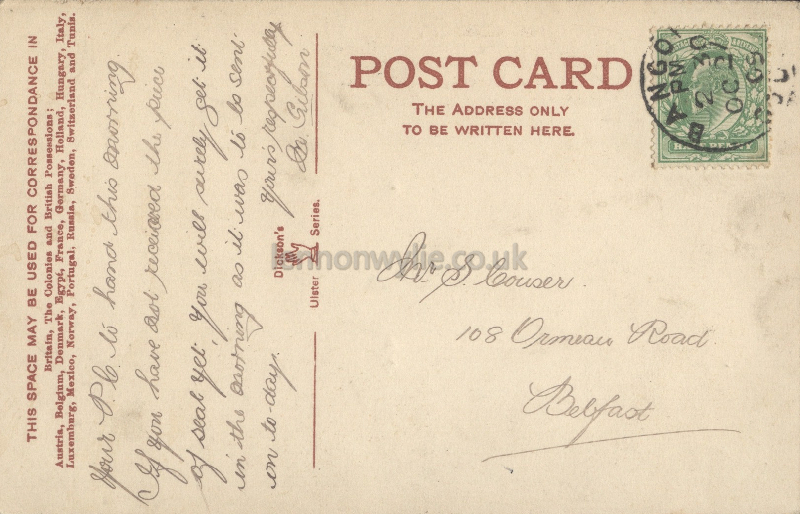 THIS SPACE MAY BE USED FOR CORRESPONDANCE IN
Britain, The Colonies and British Possessions;
Austria, Belgium, Denmark, Egypt, France, Germany, Holland, Hungary, Italy,
Luxemburg, Mexico, Norway, Portugal, Russia, Sweden, Switzerland and Tunis.
Your P.C. to hand this morning
If you have not received the piece
of seat yet, you will surely get it
in the morning as it was to be sent
on to-day.
Yours respectfully
Gibson
Dickson's
Ulster Series.
POST CARD
THE ADDRESS ONLY
TO BE WRITTEN HERE.
BANGOR
2 30 PM
OC 21
HALFPENNY
Mr S. Couser.
108 Ormeau Road
Belfast